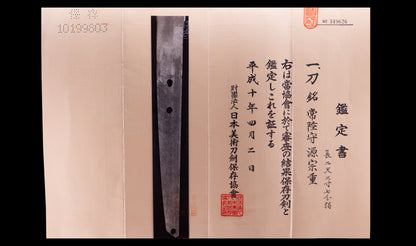 保存
10199803
No 349626
鑑定書
一、刀 銘 常陸守源宗重
長二尺三寸七分弱
右は當協會に於て審査の結果保存刀剣と
鑑定しこれを証する
平成十年四月二日
財團法人 日本美術刀剣保存協會